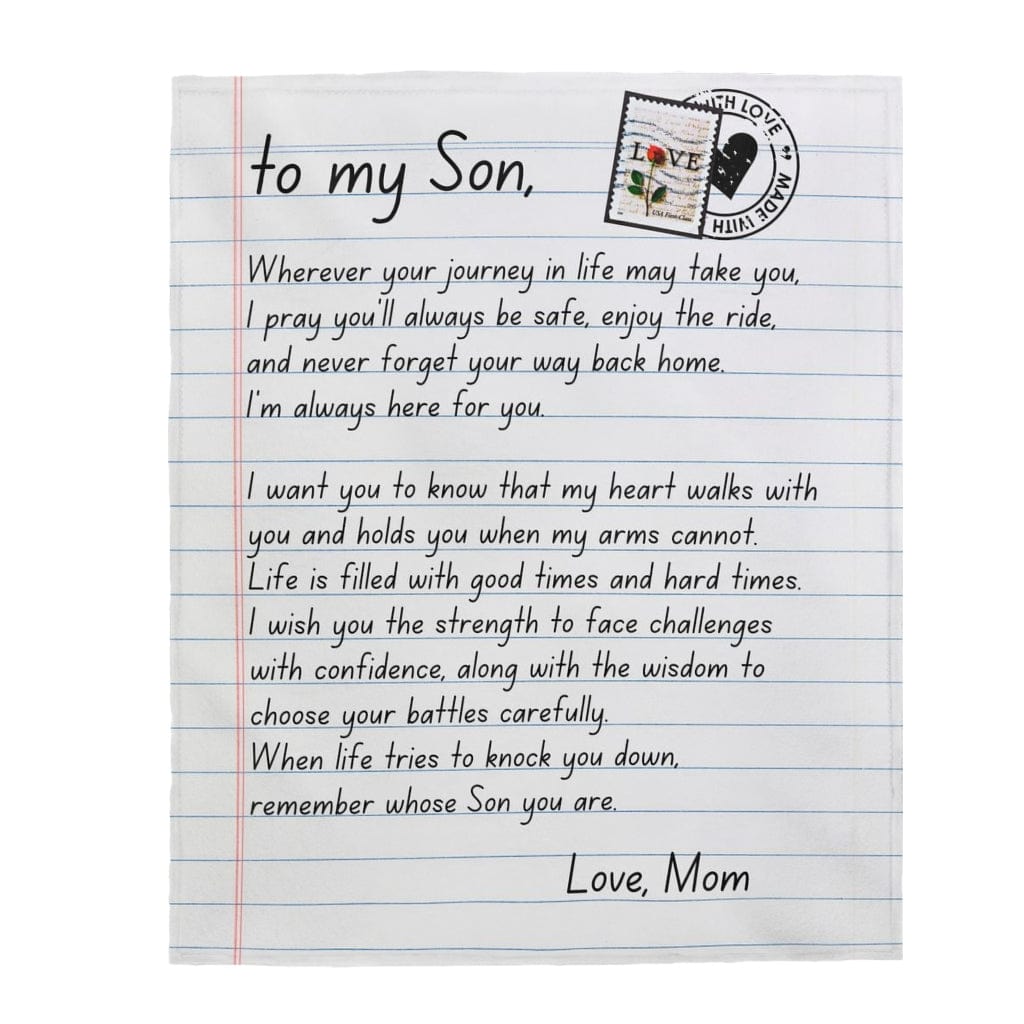 to my Son,
LOVE
USA First-Class
WITH LOVE
MADE WITH
Wherever your journey in life may take you,
I pray you'll always be safe, enjoy the ride,
and never forget your way back home.
I'm always here for you.
I want you to know that my heart walks with
you and holds you when my arms cannot.
Life is filled with good times and hard times.
I wish you the strength to face challenges
with confidence, along with the wisdom to
choose your battles carefully.
When life tries to knock you down,
remember whose Son you are.
Love, Mom